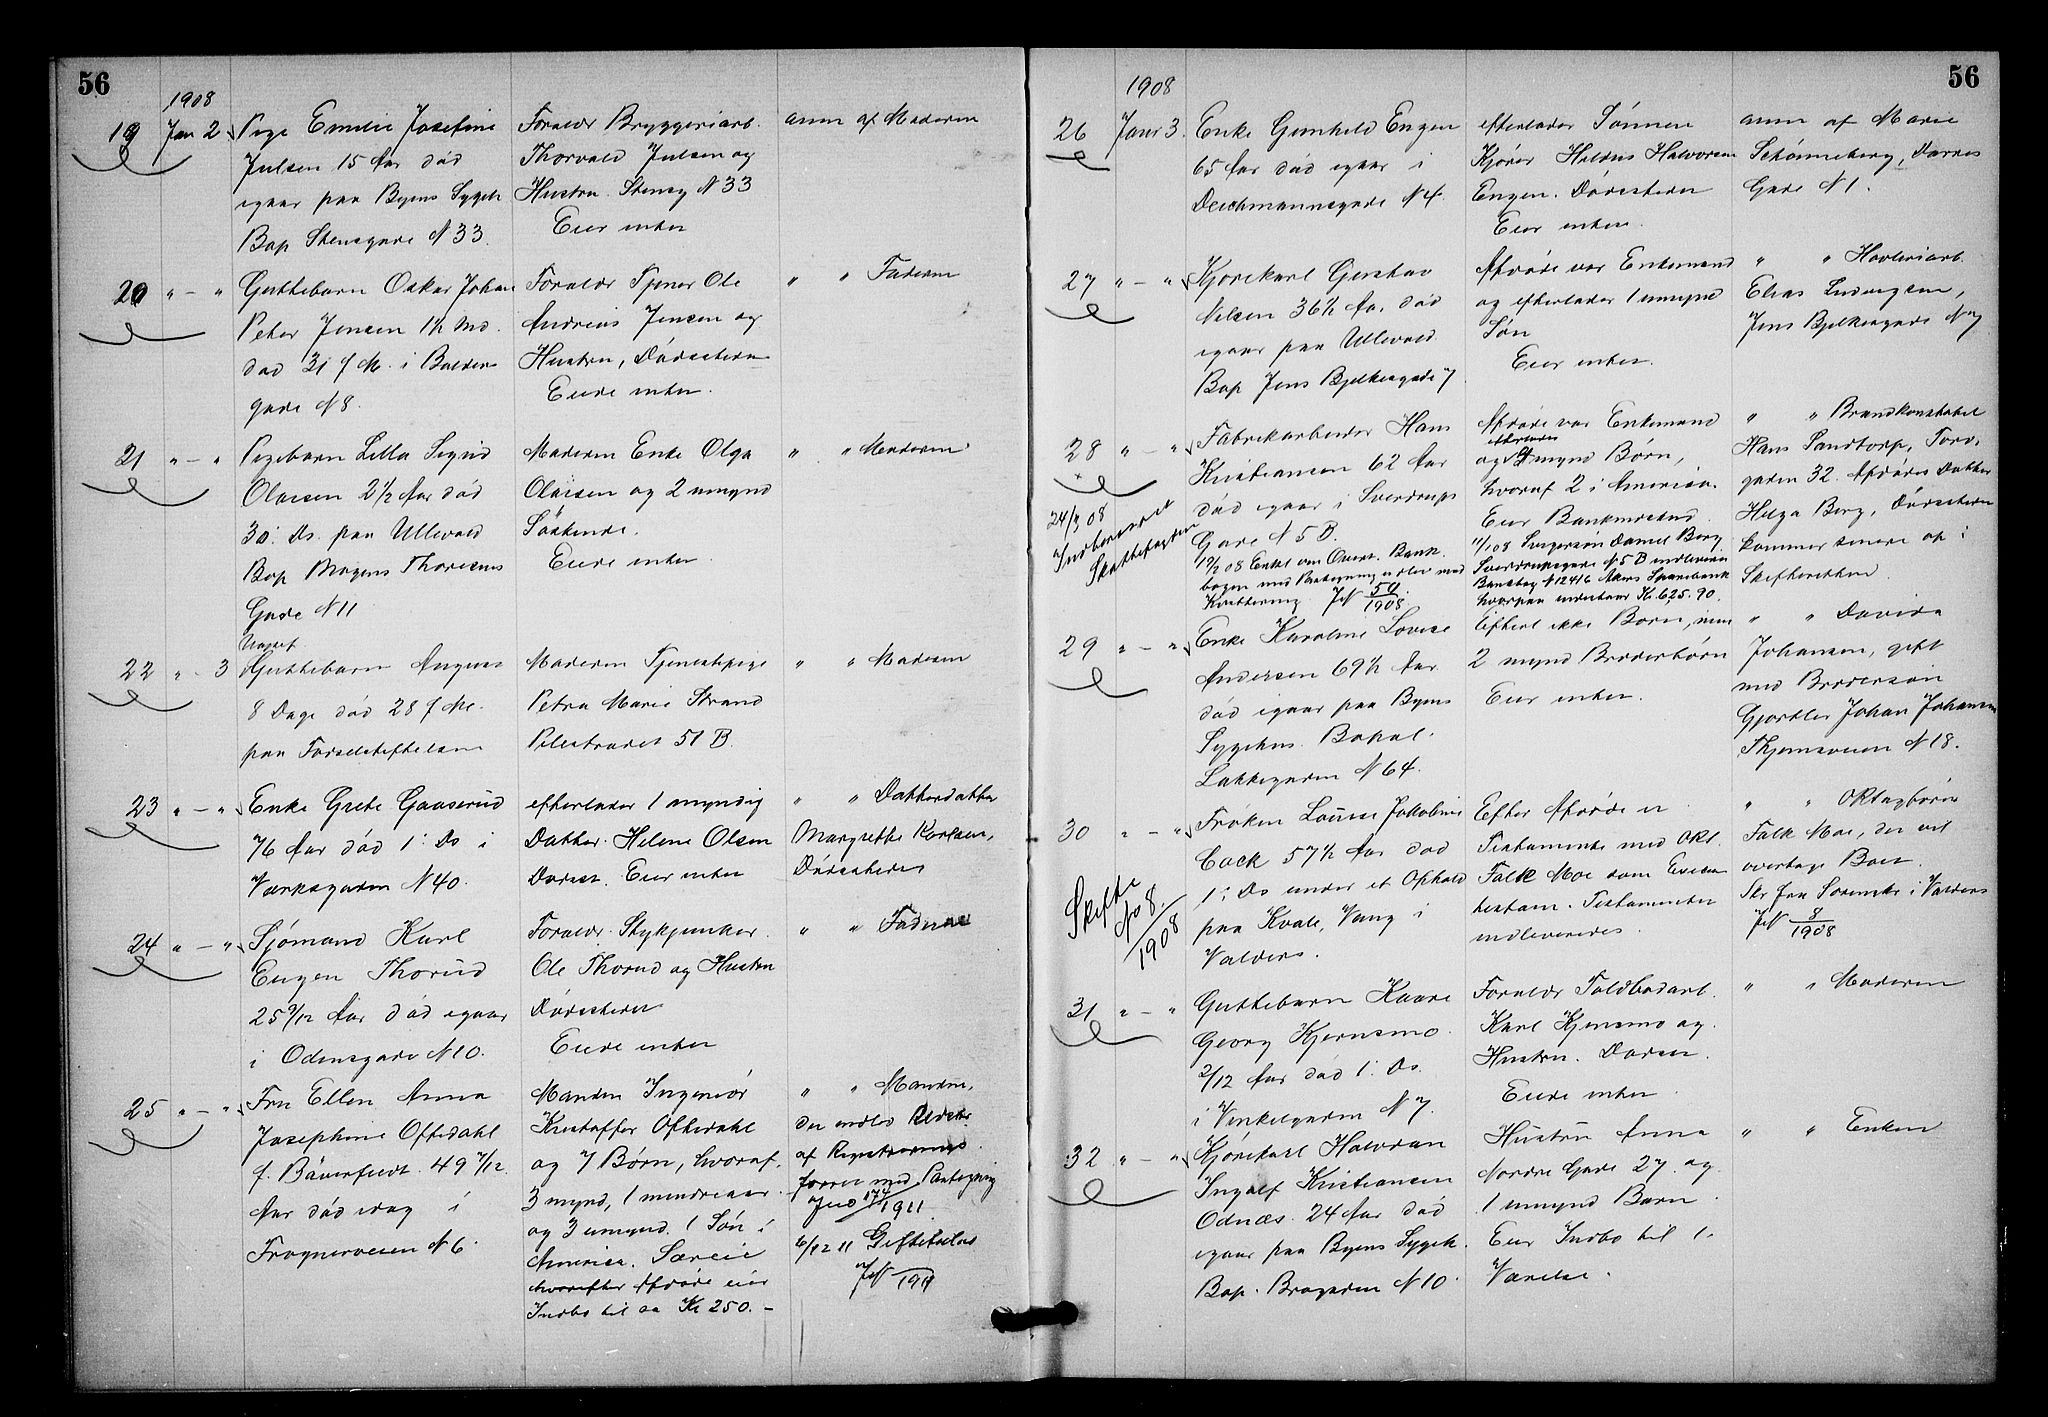 56
1908
19 Jan 2 Pige Emilie Josefine
Julsen 15 Aar død
igaar paa Byens Sygeh
Bop Stensgade N 33.
Foraldr Bryggeriarb.
Thorvald Julsen og
Hustru. Stensg N 33
Eier inten
anm af Moderen
20 " - " Guttebarn Oskar Johan
Peter Jensen 1½ Md.
død 31 f M. i Balders
gade N 8.
Foraldr Tjener Ole
Andreas Jensen og
Hustru, Dødsstedn
Eiede inten.
" " Faderen
21 " - " Pigebarn Lilla Sigrid
Olaisen 2½ Aar død
30: Ds. paa Ullevaal
Bop Mogens Thorsens
Gade N 11
Moderen Enke Olga
Olaisen og 2 umynd
Søskende.
Eiede inten
" " Moderen
22 " - 3 Guttebarn
8 Dage død 28 f M.
paa Fødselsstiftelsen
Moderen Tjenestepige
Petra Marie Strand
Pilestrædet 51 B.
" " Moderen
23 " - " Enke Grete Gaaserud
76 Aar død 1: Ds i
Værksgaden N 40.
efterlader 1 myndig
Datter. Helene Olsen
Dødsst. Eier inten
" " Datterdatter
Margrethe Karlsen,
Dødsstedet
24 " - " Sjømand Karl
Eugen Thorud
25 9/12 Aar død igaar
i Odinsgade N 10.
Foraldr. Stykjunker
Ole Thorud og Hustru
Dødsstedet
Eiede inten
" " Faderen
25 " - " Fru Ellen Anna
Josephine Oftedahl
f. Bäverfeldt. 49 7/12
Aar død idag i
Frognerveien N 6.
Manden Ingeniør
Kristoffer Oftedahl
og 7 Børn, hvoraf
3 mynd, 1 mindreaar.
og 3 umynd. 1 Søn i
Amerika. Særeie
hvorefter Afdøde eier
Indbo til ca Kr 250.-
" " Manden,
der indlev
af
med Paategning
Jno 174/1911
6/12 11
JN 1911
56
1908
26 Janr 3. Enke Gunhild Engen
65 Aar død igaar i
Deichmannsgade N 4.
efterlader Sønnen
Kjører Hildus Halvorsen
Engen. Dødsstedet
Eier inten.
anm af Marie
Schønneberg, Darres
Gade N 1.
27 " - " Kjørekarl Gustav
Nilsen 36½ Aar død
igaar paa Ullevaal
Bop Jens Bjelkesgade 7
Afdøde var Enkemand
og efterlader 1 umynd
Søn
Eier inten.
" " Høvleriarb
Elias Ludvigsen,
Jens Bjelkesgade N 7
28 " - " Fabrikarbeider Hans
Kristiansen 62 Aar
død igaar i Sverdrups
Gade N 5 B.
Bank
bogen med Paategning udlev mod
Kvittering JN 59/1908.
24/3 08
Indberettet
Skattefogden
Afdøde var Enkemand
og efterlader 4 mynd Børn,
hvoraf 2 i Amerika.
Eier Bankindskud.
11/1 08 Svigersøn Daniel Berg
Sverdrupsgade N 5 B indleverer
Bankbog N 12416 Akers Sparebank
hvorpaa indestaar Kr. 625.90.
" " Brandkonstabel
Hans Sandtorp, Torv.
gaden 32. Afdødes Datter
Helga Berg, Dødsstedet
kommer senere op i
Skifteretten.
29 " - " Enke Karoline Lovise
Andersen 69½ Aar
død igaar paa Byens
Sygehus. Bopæl.
Lakkegaden N 64.
Efterl ikke Børn, men
2 mynd Broderbørn
Eier inten.
" " Davida
Johansen, gift
med Brodersøn
Gjørtler Johan Johansen
N 18.
30 " - " Frøken Louise Jakobine
Cock 57½ Aar død
1: Ds under et Ophold
paa Kvale, Vang i
Valders.
Skifte
No 8/1908
Efter Afdøde er
Testamente med OR
Falk Moe som Execu
testam. Testamentet
indleveredes.
" " ORtsagfører
Falk Moe, der vil
overtage Boet.
Skr fra Sorenskr i Valders
JN 8/1908
31 " - " Guttebarn Kaare
Georg Kjernsmo
2/12 Aar død 1: Ds.
i Vinkelgaden N 7.
Foraldr Toldbodarb.
Karl Kjernsmo og
Hustru. Dødsst.
Eiede inten
" " Moderen
32 " - " Kjørekarl Halvdan
Ingolf Kristiansen
Odnæs. 24 Aar død
igaar paa Byens Sygeh.
Bop. Bragaden N 10.
Hustru Anna
Nordre Gade 27 og
1 umynd Barn
Eier Indbo til 1.
Værelse.
" " Enken